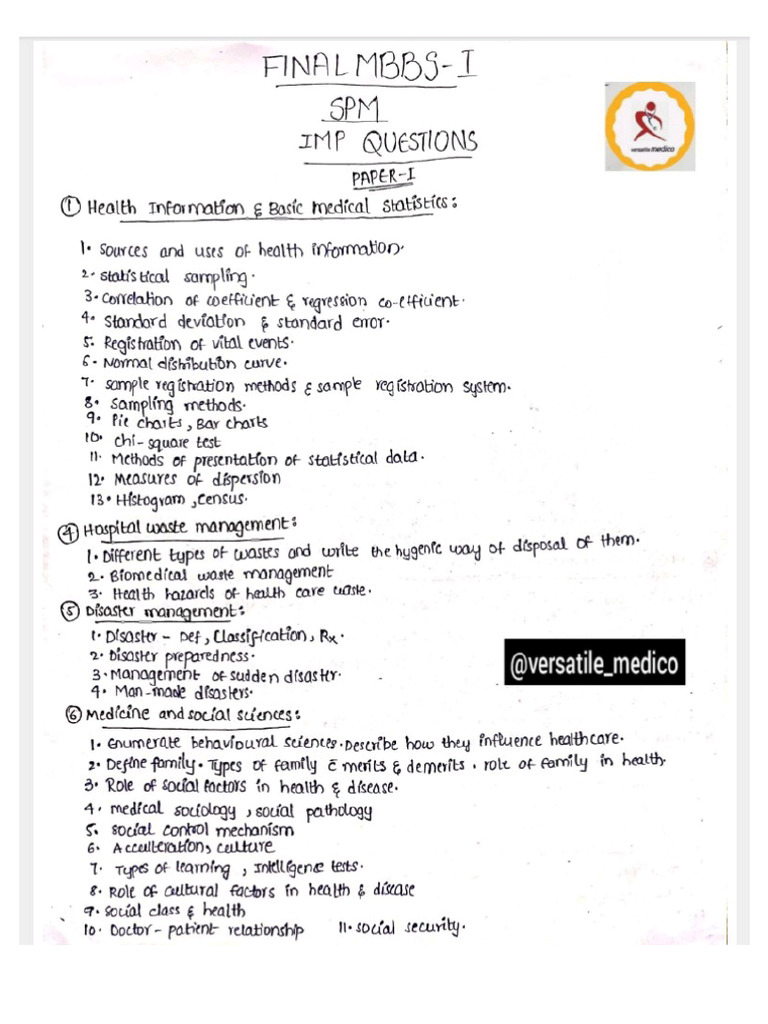 FINAL MBBS-I
SPM
IMP QUESTIONS
PAPER-I
versatile medico
① Health Information & Basic Medical Statistics:
1. Sources and uses of health information.
2. Statistical sampling.
3. Correlation of coefficient & regression co-efficient.
4. Standard deviation & standard error.
5. Registration of vital events.
6. Normal distribution curve.
7. Sample registration methods & sample registration system.
8. Sampling methods.
9. Pie charts, Bar charts
10. Chi-square test
11. Methods of presentation of statistical data.
12. Measures of dispersion
13. Histogram, census.
④ Hospital waste management:
1. Different types of wastes and write the hygenic way of disposal of them.
2. Biomedical waste management
3. Health hazards of health care waste.
⑤ Disaster management:
1. Disaster - Def, Classification, Rx.
2. Disaster preparedness.
3. Management of sudden disaster.
4. Man-made disasters.
@versatile_medico
⑥ Medicine and social sciences:
1. Enumerate behavioural sciences. Describe how they influence healthcare.
2. Define family. Types of family c̄ merits & demerits. role of family in health.
3. Role of social factors in health & disease.
4. medical sociology, social pathology
5. social control mechanism
6. Acculteration, culture
7. Types of learning, Intelligence tests.
8. Role of cultural factors in health & disease
9. social class & health
10. Doctor-patient relationship 11. social security.